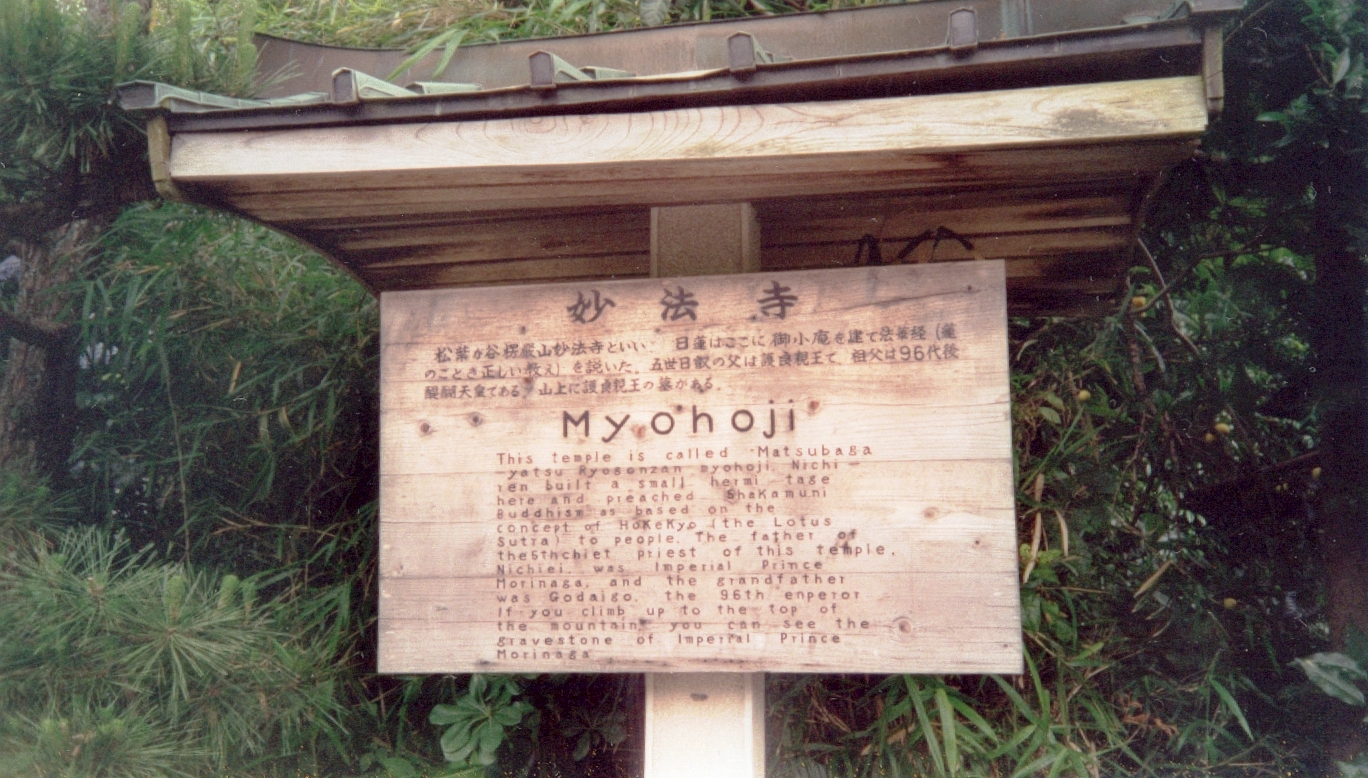 妙法寺
松葉が谷楞厳山妙法寺といい、日蓮はここに御小庵を建て法華経（蓮
のごとき正しい教え）を説いた。五世日叡の父は護良親王で、祖父は96代後
醍醐天皇である。山上に護良親王の墓がある。
Myohoji
This temple is called Matsubaga
yatsu Ryogonzan myohoji. Nichi
ren built a small hermi tage
here and preached Shakamuni
Buddhism as based on the
concept of HoKeKyo (the Lotus
Sutra) to people. The father of
the5thchiet priest of this temple,
Nichiei, was Imperial Prince
Morinaga, and the grandfather
was Godaigo, the 96th enperor
If you climb up to the top of
the mountain, you can see the
gravestone of Imperial Prince
Morinaga